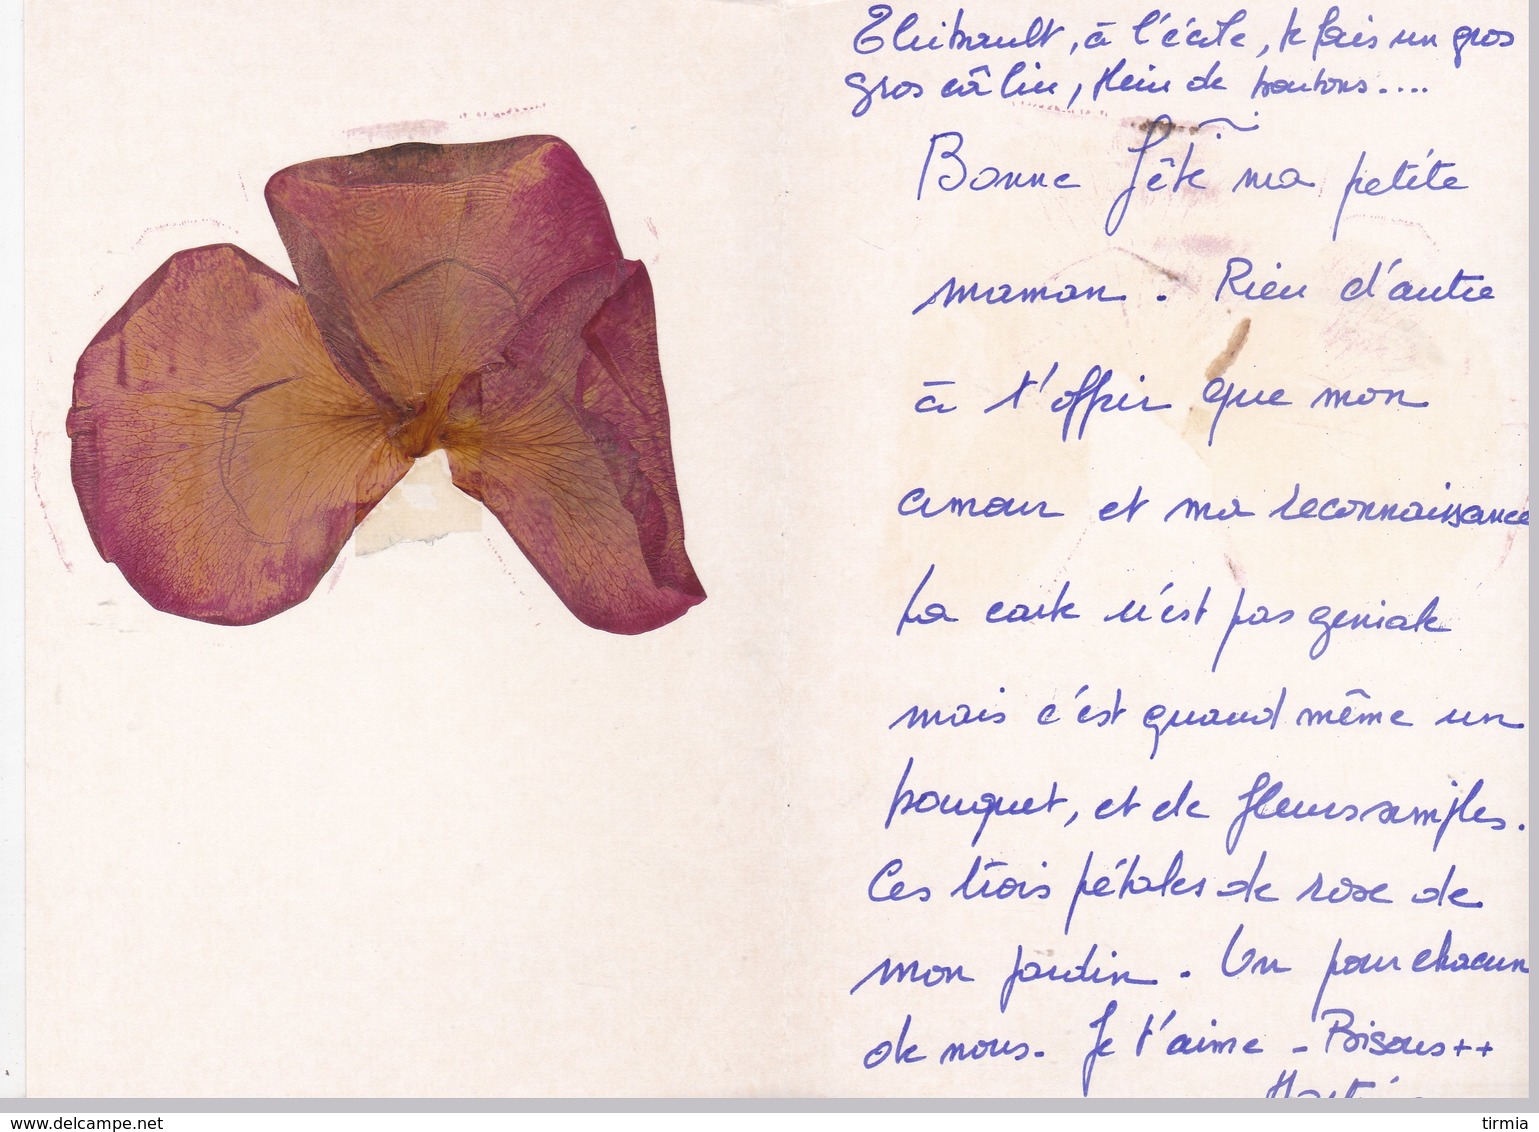 Thibault, à l'école, te fais un gros
gros câlin, plein de boutons....
Bonne fête ma petite
maman. Rien d'autre
à t'offrir que mon
amour et ma reconnaissance
La carte n'est pas geniale
mais c'est quand même un
bouquet, et de fleurs simples.
Ces trois pétales de rose de
mon jardin. Un pour chacun
de nous. Je t'aime - Bisous ++
www.delcampe.net
tirmia